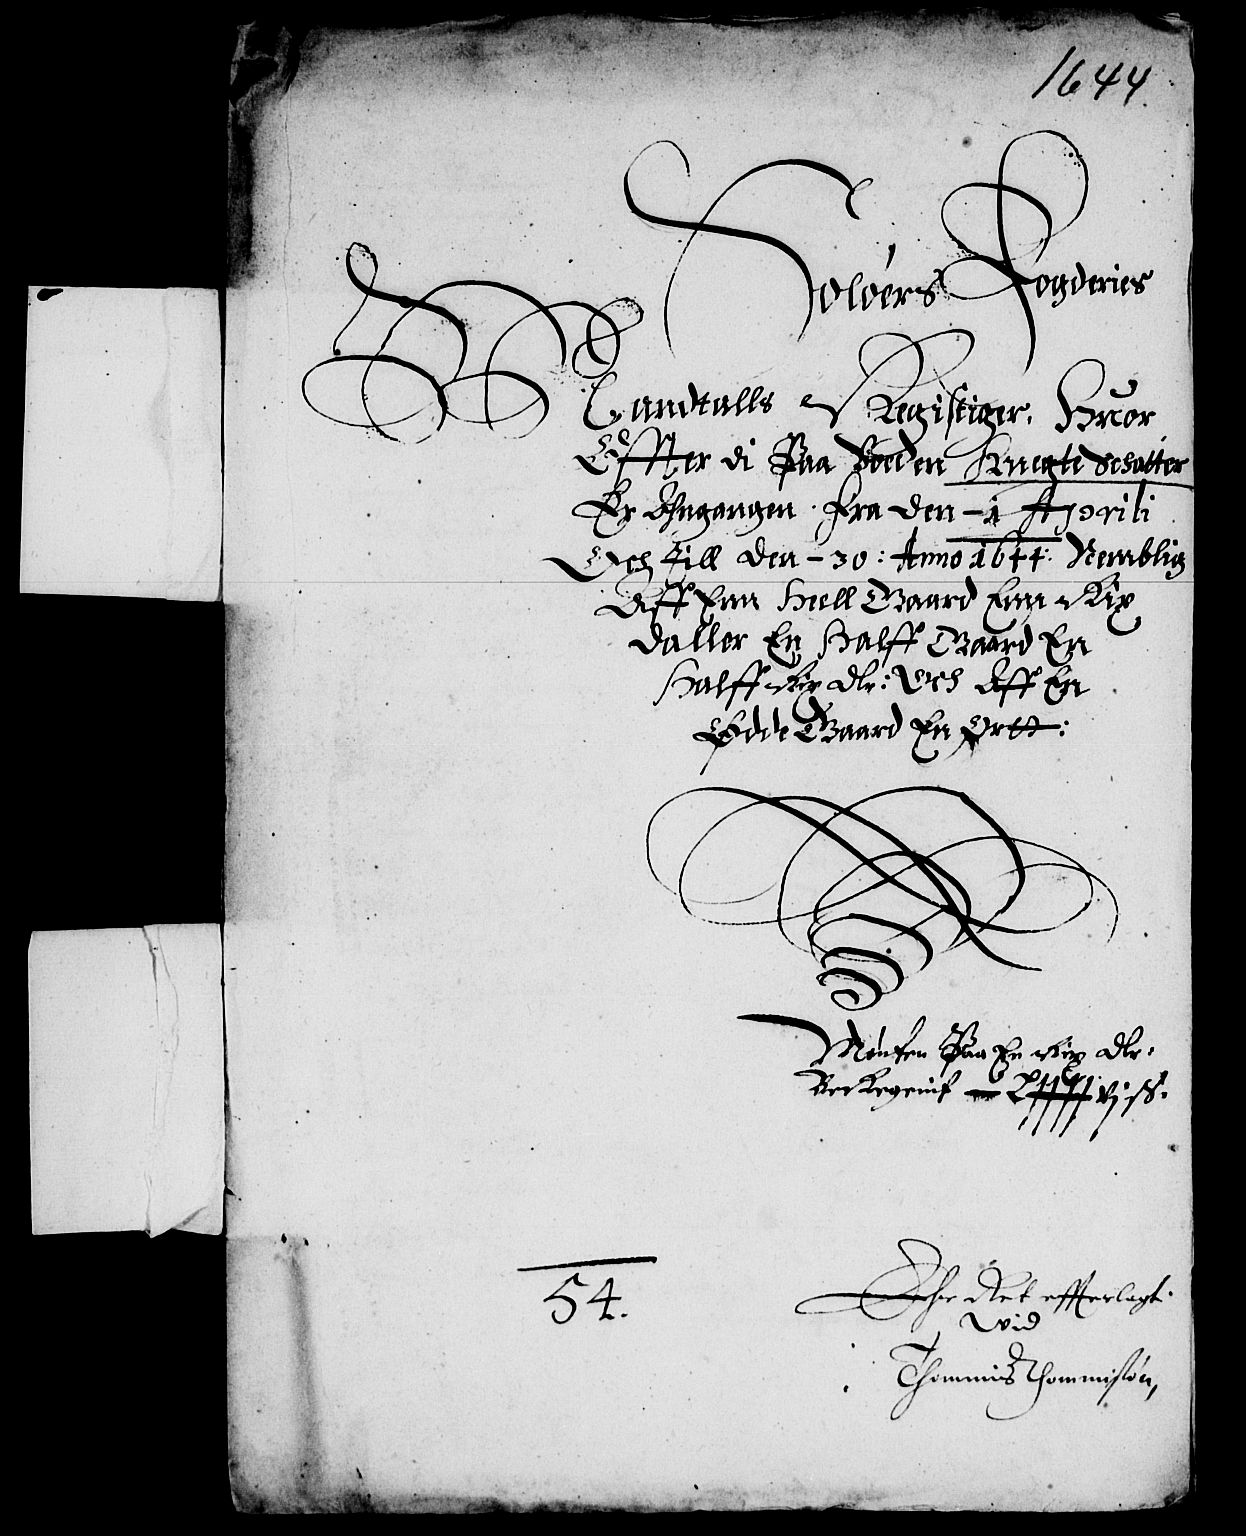 1644.
Soløers Fogderies
Landtalls Register, Huor
Effter di Paa Boeden Knegte Schatter
Er Anganngen fra den - 1 Aprili
Och Till den - 30: Anno 1644: Nemblig
Aff Enn Hiell Gaard Enn Rix
daller En Halff Gaard En
Halff Rix dlr: Och Aff En
Ødde Gaard En Ortt:
Mønten Paa En Rix dlr:
Berregenit vj ß.
Ehr Ret effterlagt
wid
54.
Thommis Thommisøn,